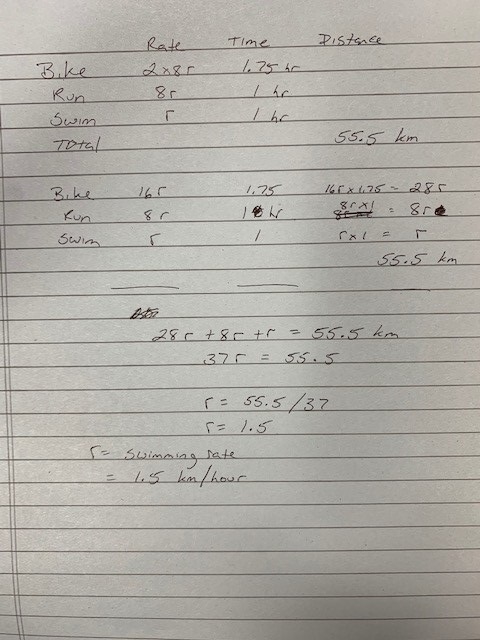 Rate Time Distance
Bike 2x8r 1.75 hr
Run 8r 1 hr
Swim r 1 hr
Total 55.5 km
Bike 16r 1.75 16r x 1.75 = 28r
Run 8r 1 hr 8r x 1 = 8r
Swim r 1 r x 1 = r
55.5 km
28r + 8r + r = 55.5 km
37r = 55.5
r = 55.5/37
r = 1.5
r = swimming rate
= 1.5 km/hour